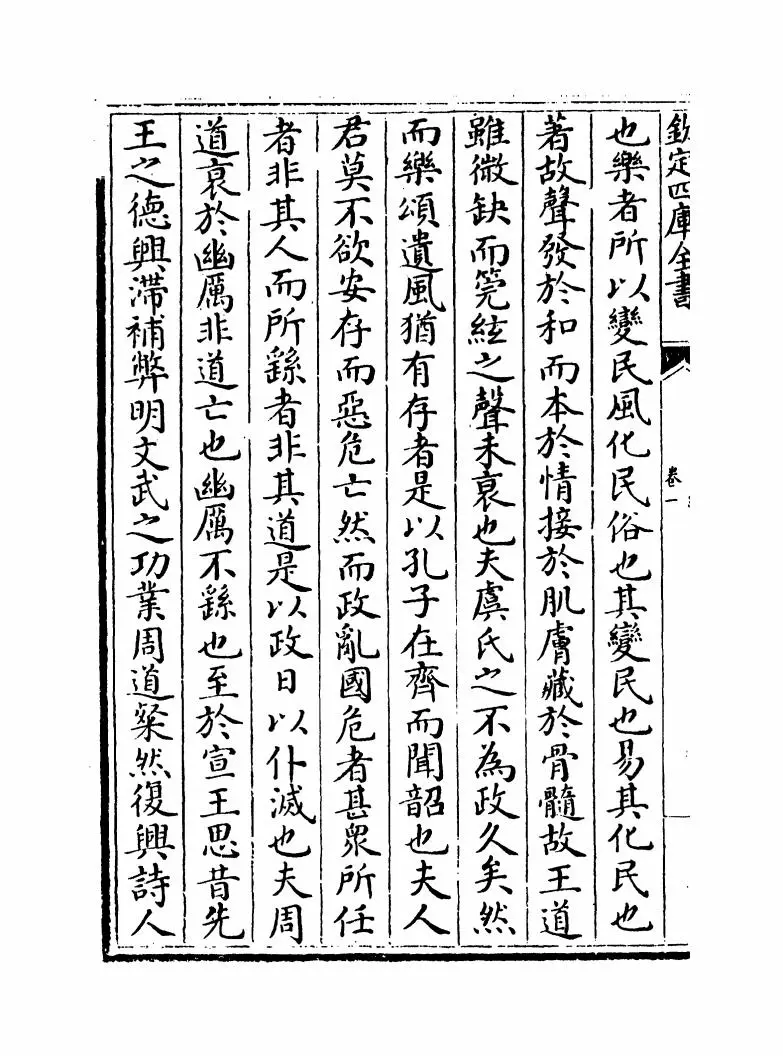 欽定四庫全書
卷一
也樂者所以變民風化民俗也其變民也易其化民也
著故聲發於和而本於情接於肌膚藏於骨髓故王道
雖微缺而筦絃之聲未衰也夫虞氏之不為政久矣然
而樂頌遺風猶有存者是以孔子在齊而聞韶也夫人
君莫不欲安存而惡危亡然而政亂國危者甚衆所任
者非其人而所繇者非其道是以政日以仆滅也夫周
道衰於幽厲非道亡也幽厲不繇也至於宣王思昔先
王之德興滯補弊明文武之功業周道粲然復興詩人